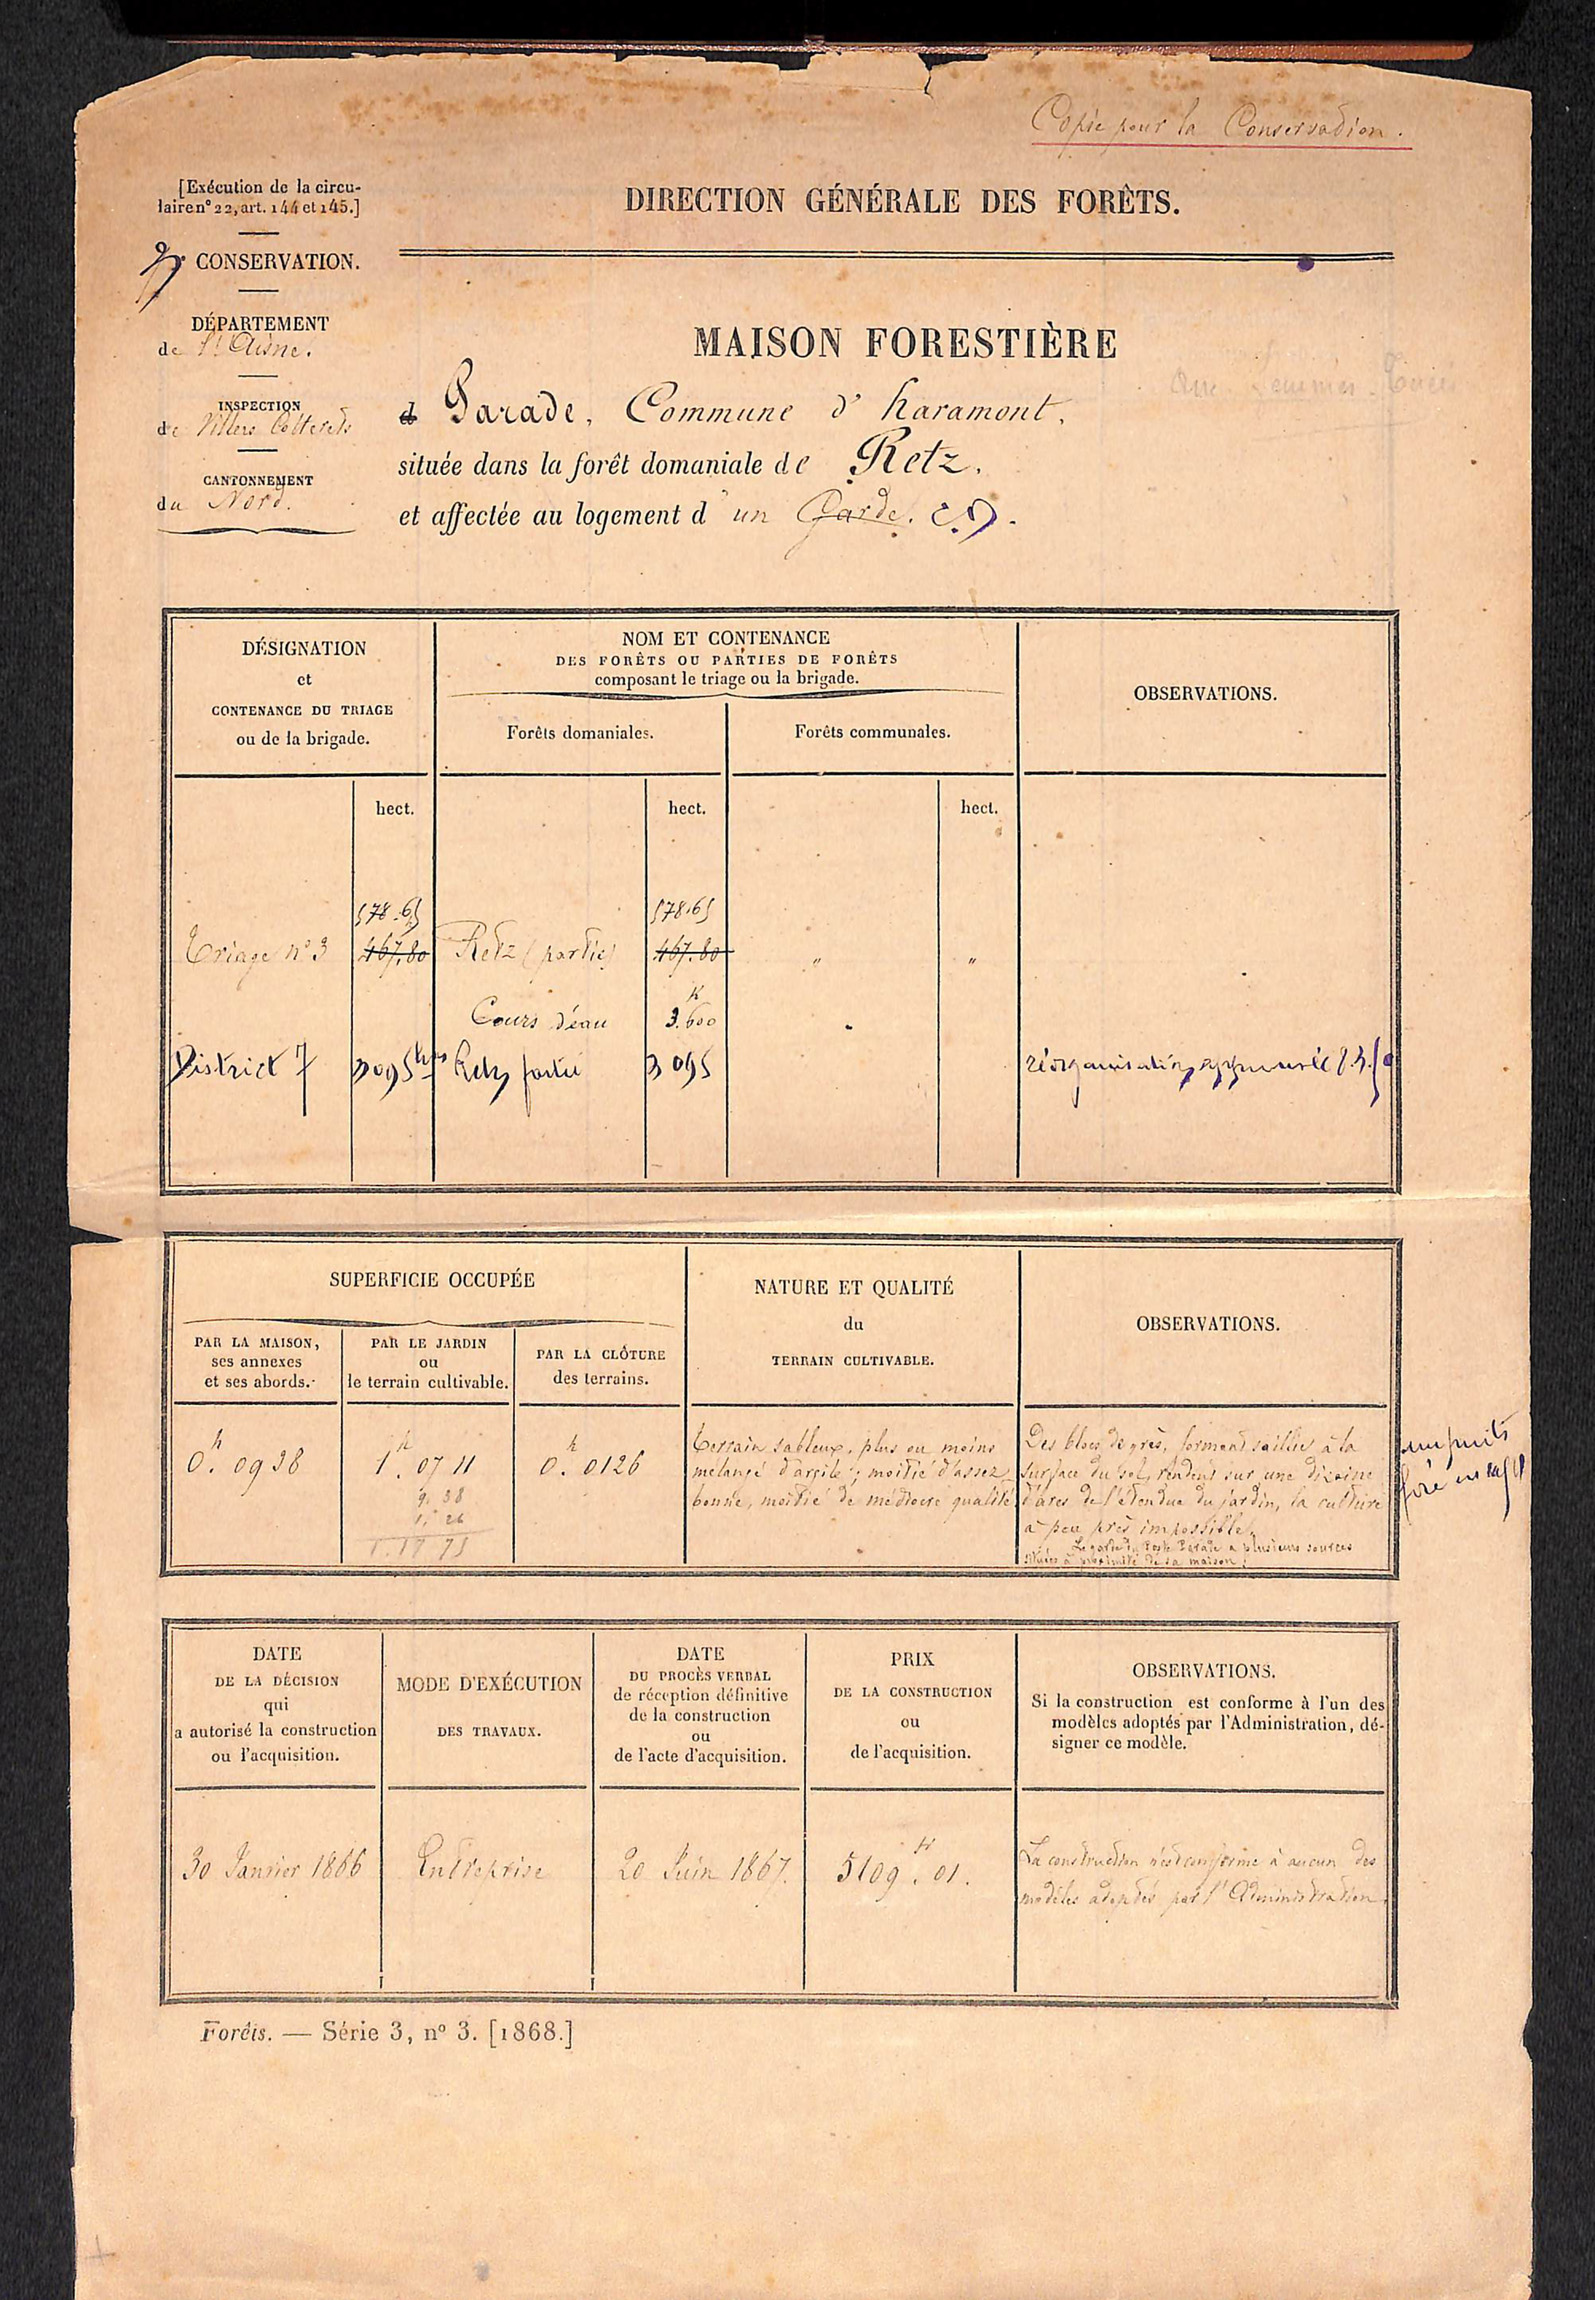 Copie pour la Conservation.
[Exécution de la circu-
laire n° 22, art. 144 et 145.]
DIRECTION GÉNÉRALE DES FORÊTS.
CONSERVATION.
DÉPARTEMENT
de l'Aisne.
INSPECTION
de Villers Cotterets
CANTONNEMENT
du Nord.
MAISON FORESTIÈRE
d Parade, Commune d'haramont,
située dans la forêt domaniale de Retz.
et affectée au logement d'un Garde.
DÉSIGNATION
et
CONTENANCE DU TRIAGE
ou de la brigade.
NOM ET CONTENANCE
DES FORÊTS OU PARTIES DE FORÊTS
composant le triage ou la brigade.
Forêts domaniales.
Forêts communales.
OBSERVATIONS.
hect. hect. hect.
578.65 578.65
Triage n° 3 467.80 Retz (partie) 467.80 " "
Cours d'eau 3.600
District 7 3095 Retz partie 3095 réorganisation approuvée
SUPERFICIE OCCUPÉE
PAR LA MAISON,
ses annexes
et ses abords.
PAR LE JARDIN
ou
le terrain cultivable.
PAR LA CLÔTURE
des terrains.
NATURE ET QUALITÉ
du
TERRAIN CULTIVABLE.
OBSERVATIONS.
0h. 0938
1h. 07 11
9. 38
1. 26
1. 17 75
0h. 0126
Terrain sableux, plus ou moins
mélangé d'argile; moitié d'assez
bonne, moitié de médiocre qualité
Des blocs de grès, formant saillie à la
surface du sol, rendent sur une dizaine
d'ares de l'étendue du jardin, la culture
à peu près impossible.
Le garde du Poste Parade a plusieurs sources
situées à proximité de sa maison.
un puits
foré en
DATE
DE LA DÉCISION
qui
a autorisé la construction
ou l'acquisition.
MODE D'EXÉCUTION
DES TRAVAUX.
DATE
DU PROCÈS VERBAL
de réception définitive
de la construction
ou
de l'acte d'acquisition.
PRIX
DE LA CONSTRUCTION
ou
de l'acquisition.
OBSERVATIONS.
Si la construction est conforme à l'un des
modèles adoptés par l'Administration, dé-
signer ce modèle.
30 Janvier 1866
Entreprise
20 Juin 1867.
5109fr. 01.
La construction n'est conforme à aucun des
modèles adoptés par l'Administration.
Forêts. — Série 3, n° 3. [1868.]